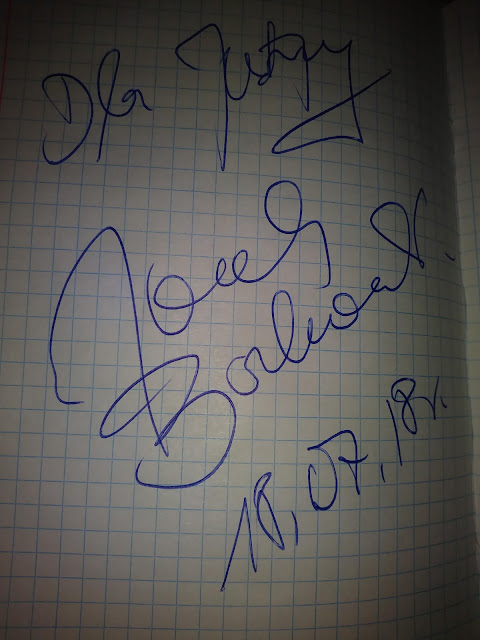 Dla Justyny
Jacek
Borkowski.
18.07.18r.